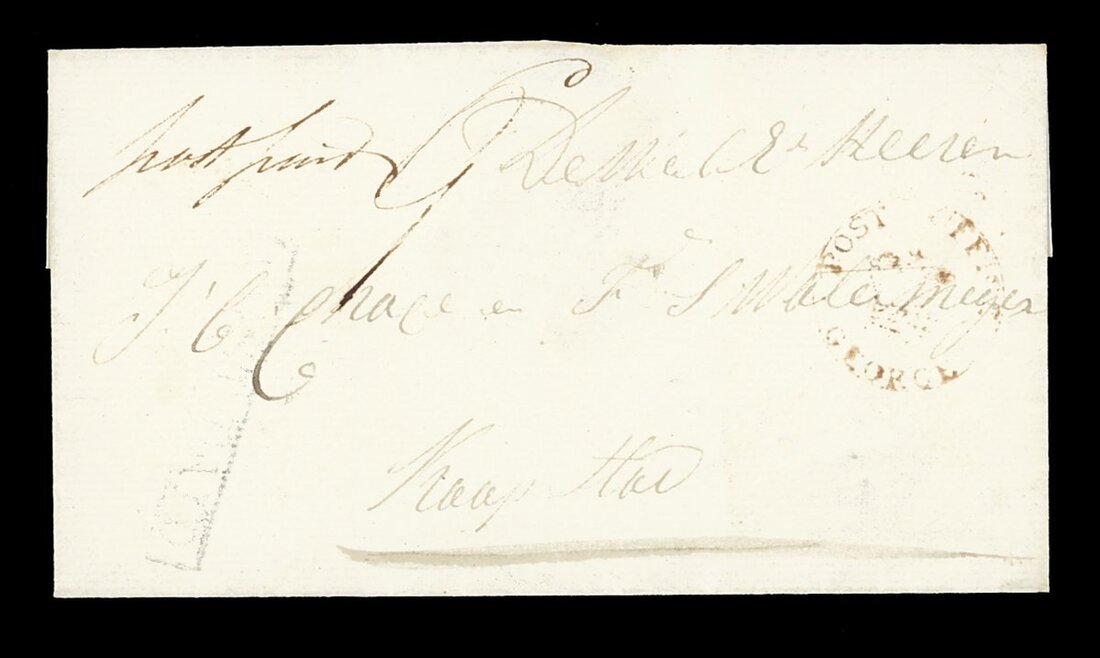 post paid
De Wel Er Heeren
J C Chace en Fr S Watermeyer
Kaap Stad
POST OFFICE
GEORGE